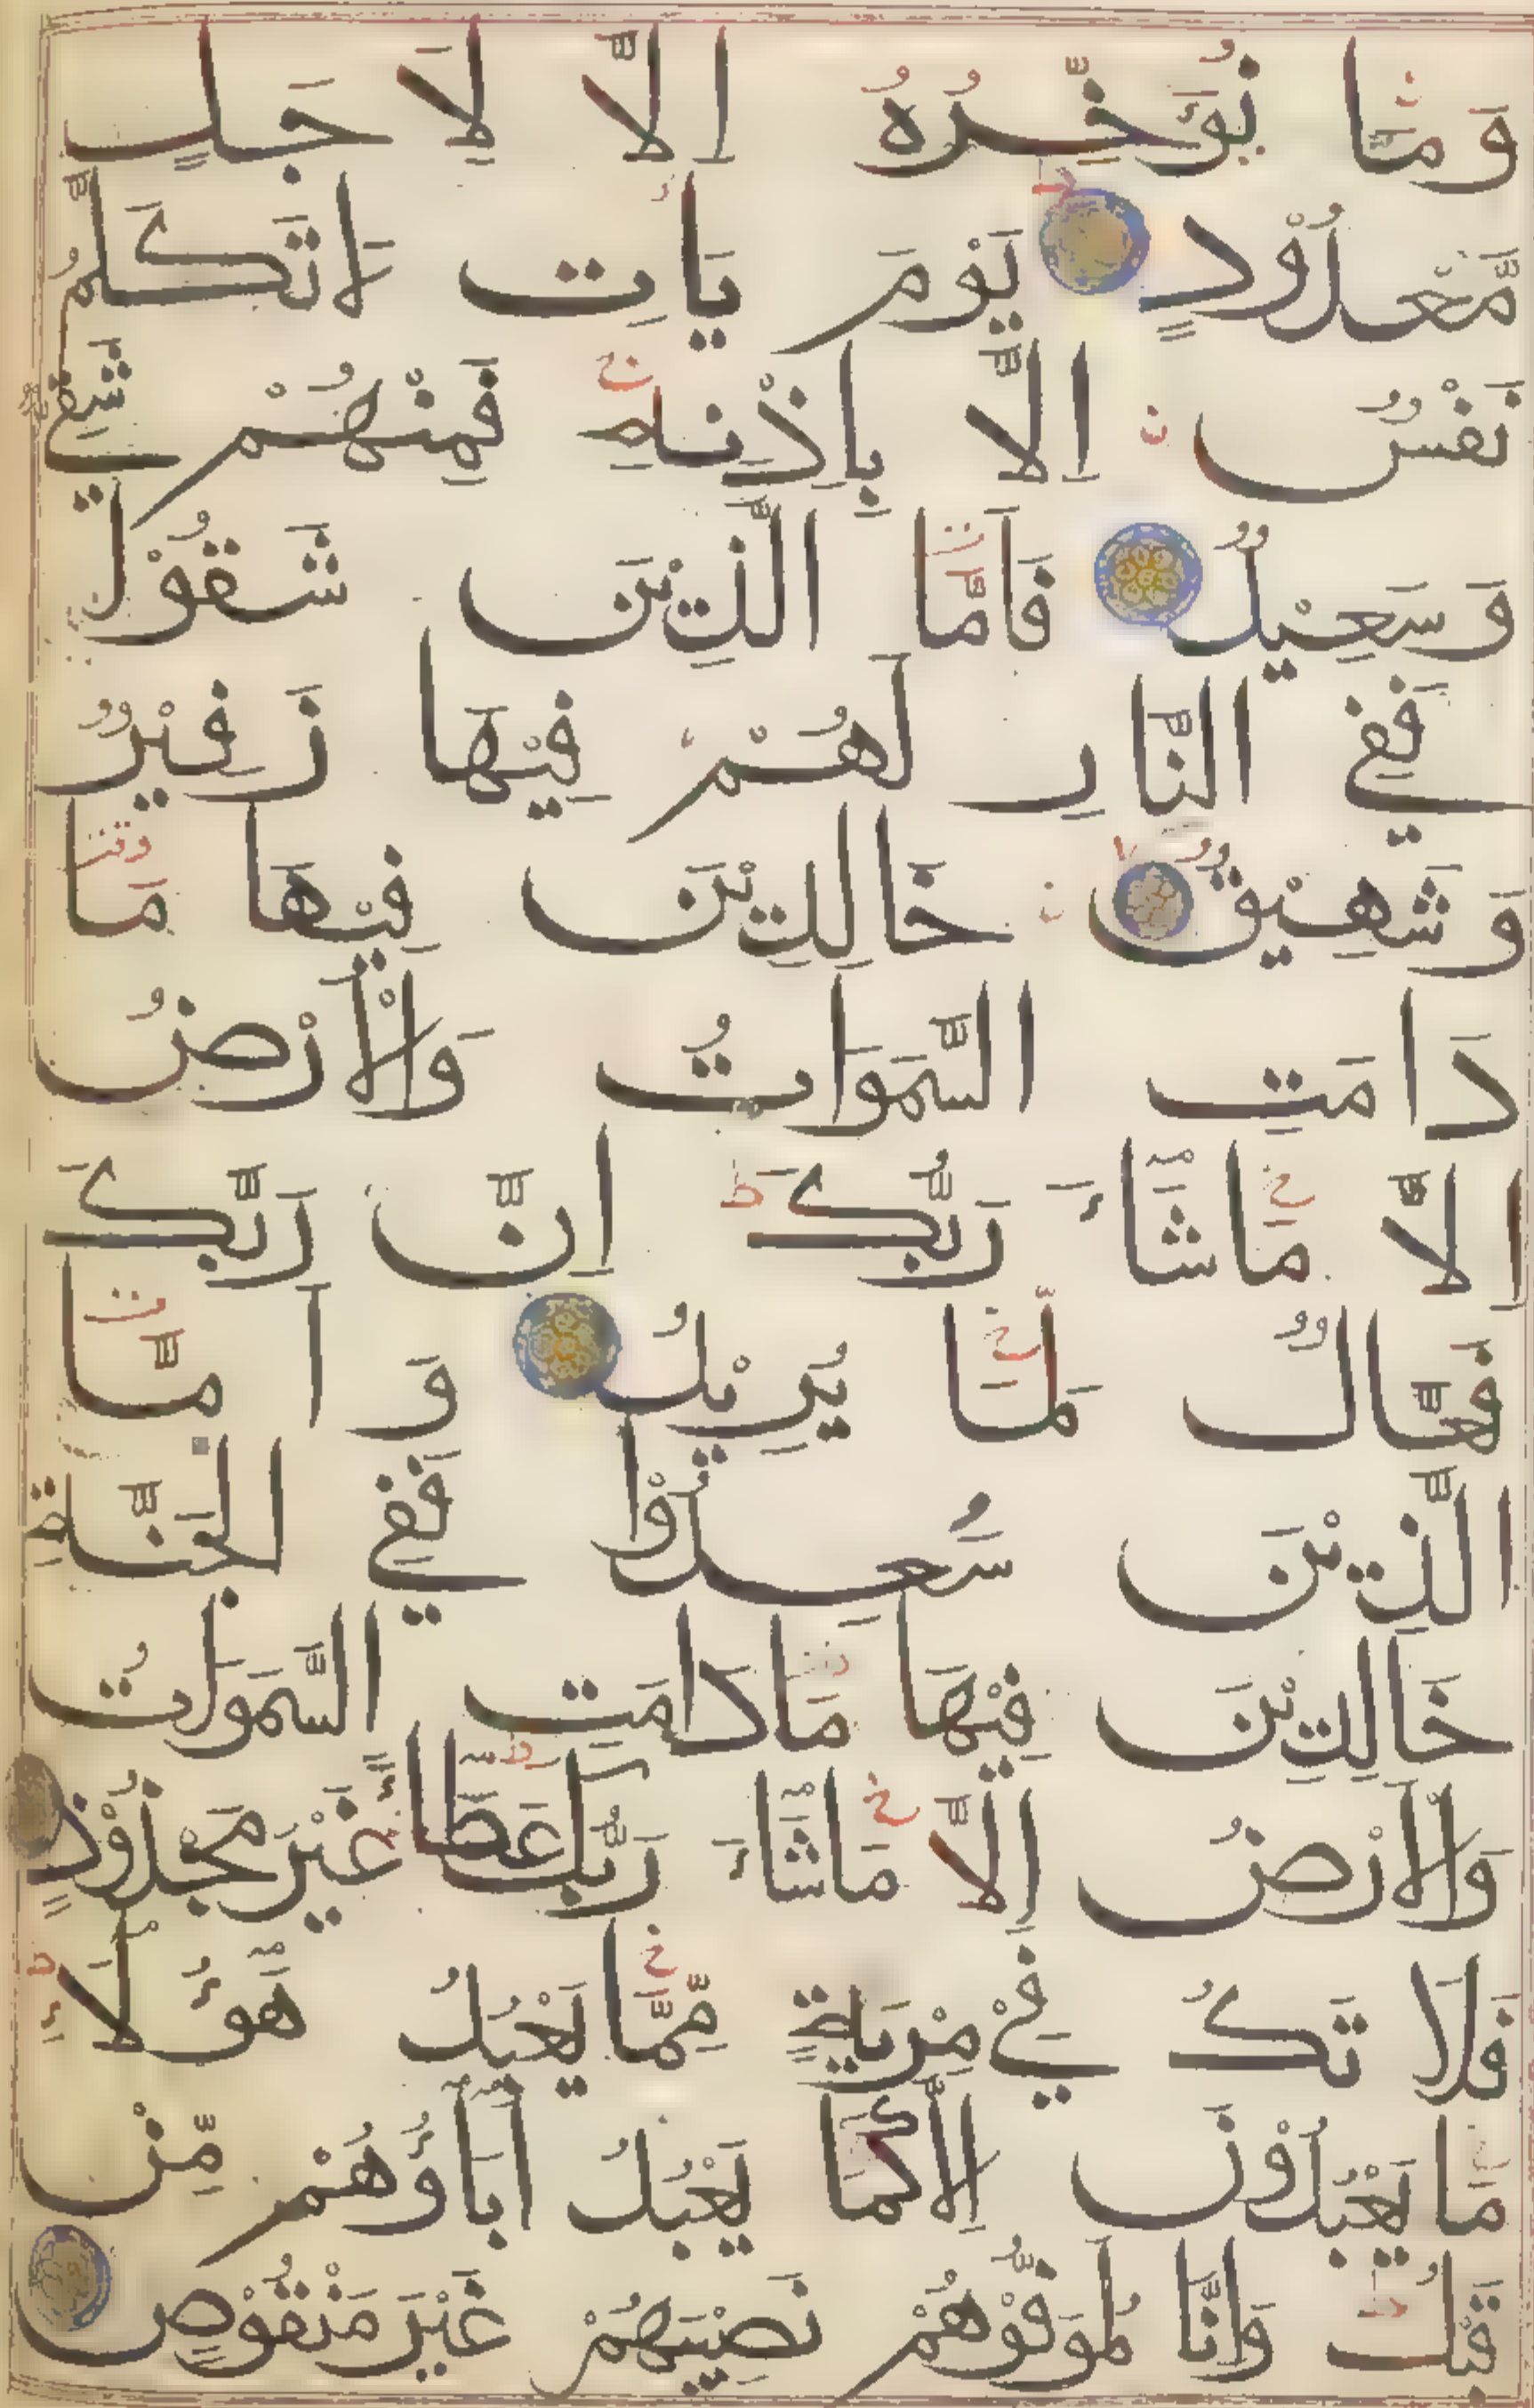 وَمَا نُؤَخِّرُهُ اِلَّا لِاَجَلٍ
مَّعْدُوْدٍ يَوْمَ يَاْتِ لَا تَكَلَّمُ
نَفْسٌ اِلَّا بِاِذْنِهٖ فَمِنْهُمْ شَقِيٌّ
وَسَعِيْدٌ فَاَمَّا الَّذِيْنَ شَقُوْا
فَفِي النَّارِ لَهُمْ فِيْهَا زَفِيْرٌ
وَشَهِيْقٌ خَالِدِيْنَ فِيْهَا مَا
دَامَتِ السَّمَوَاتُ وَالْاَرْضُ
اِلَّا مَا شَاءَ رَبُّكَ اِنَّ رَبَّكَ
فَعَّالٌ لِمَا يُرِيْدُ وَاَمَّا
الَّذِيْنَ سُعِدُوْا فَفِي الْجَنَّةِ
خَالِدِيْنَ فِيْهَا مَادَامَتِ السَّمَوَاتُ
وَالْاَرْضُ اِلَّا مَاشَاءَ رَبُّكَ عَطَاءً غَيْرَ مَجْذُوْذٍ
فَلَا تَكُ فِيْ مِرْيَةٍ مِّمَّا يَعْبُدُ هَؤُلَاءِ
مَا يَعْبُدُوْنَ اِلَّا كَمَا يَعْبُدُ اٰبَاؤُهُمْ مِّنْ
قَبْلُ وَاِنَّا لَمُوَفُّوْهُمْ نَصِيْبَهُمْ غَيْرَ مَنْقُوْصٍ